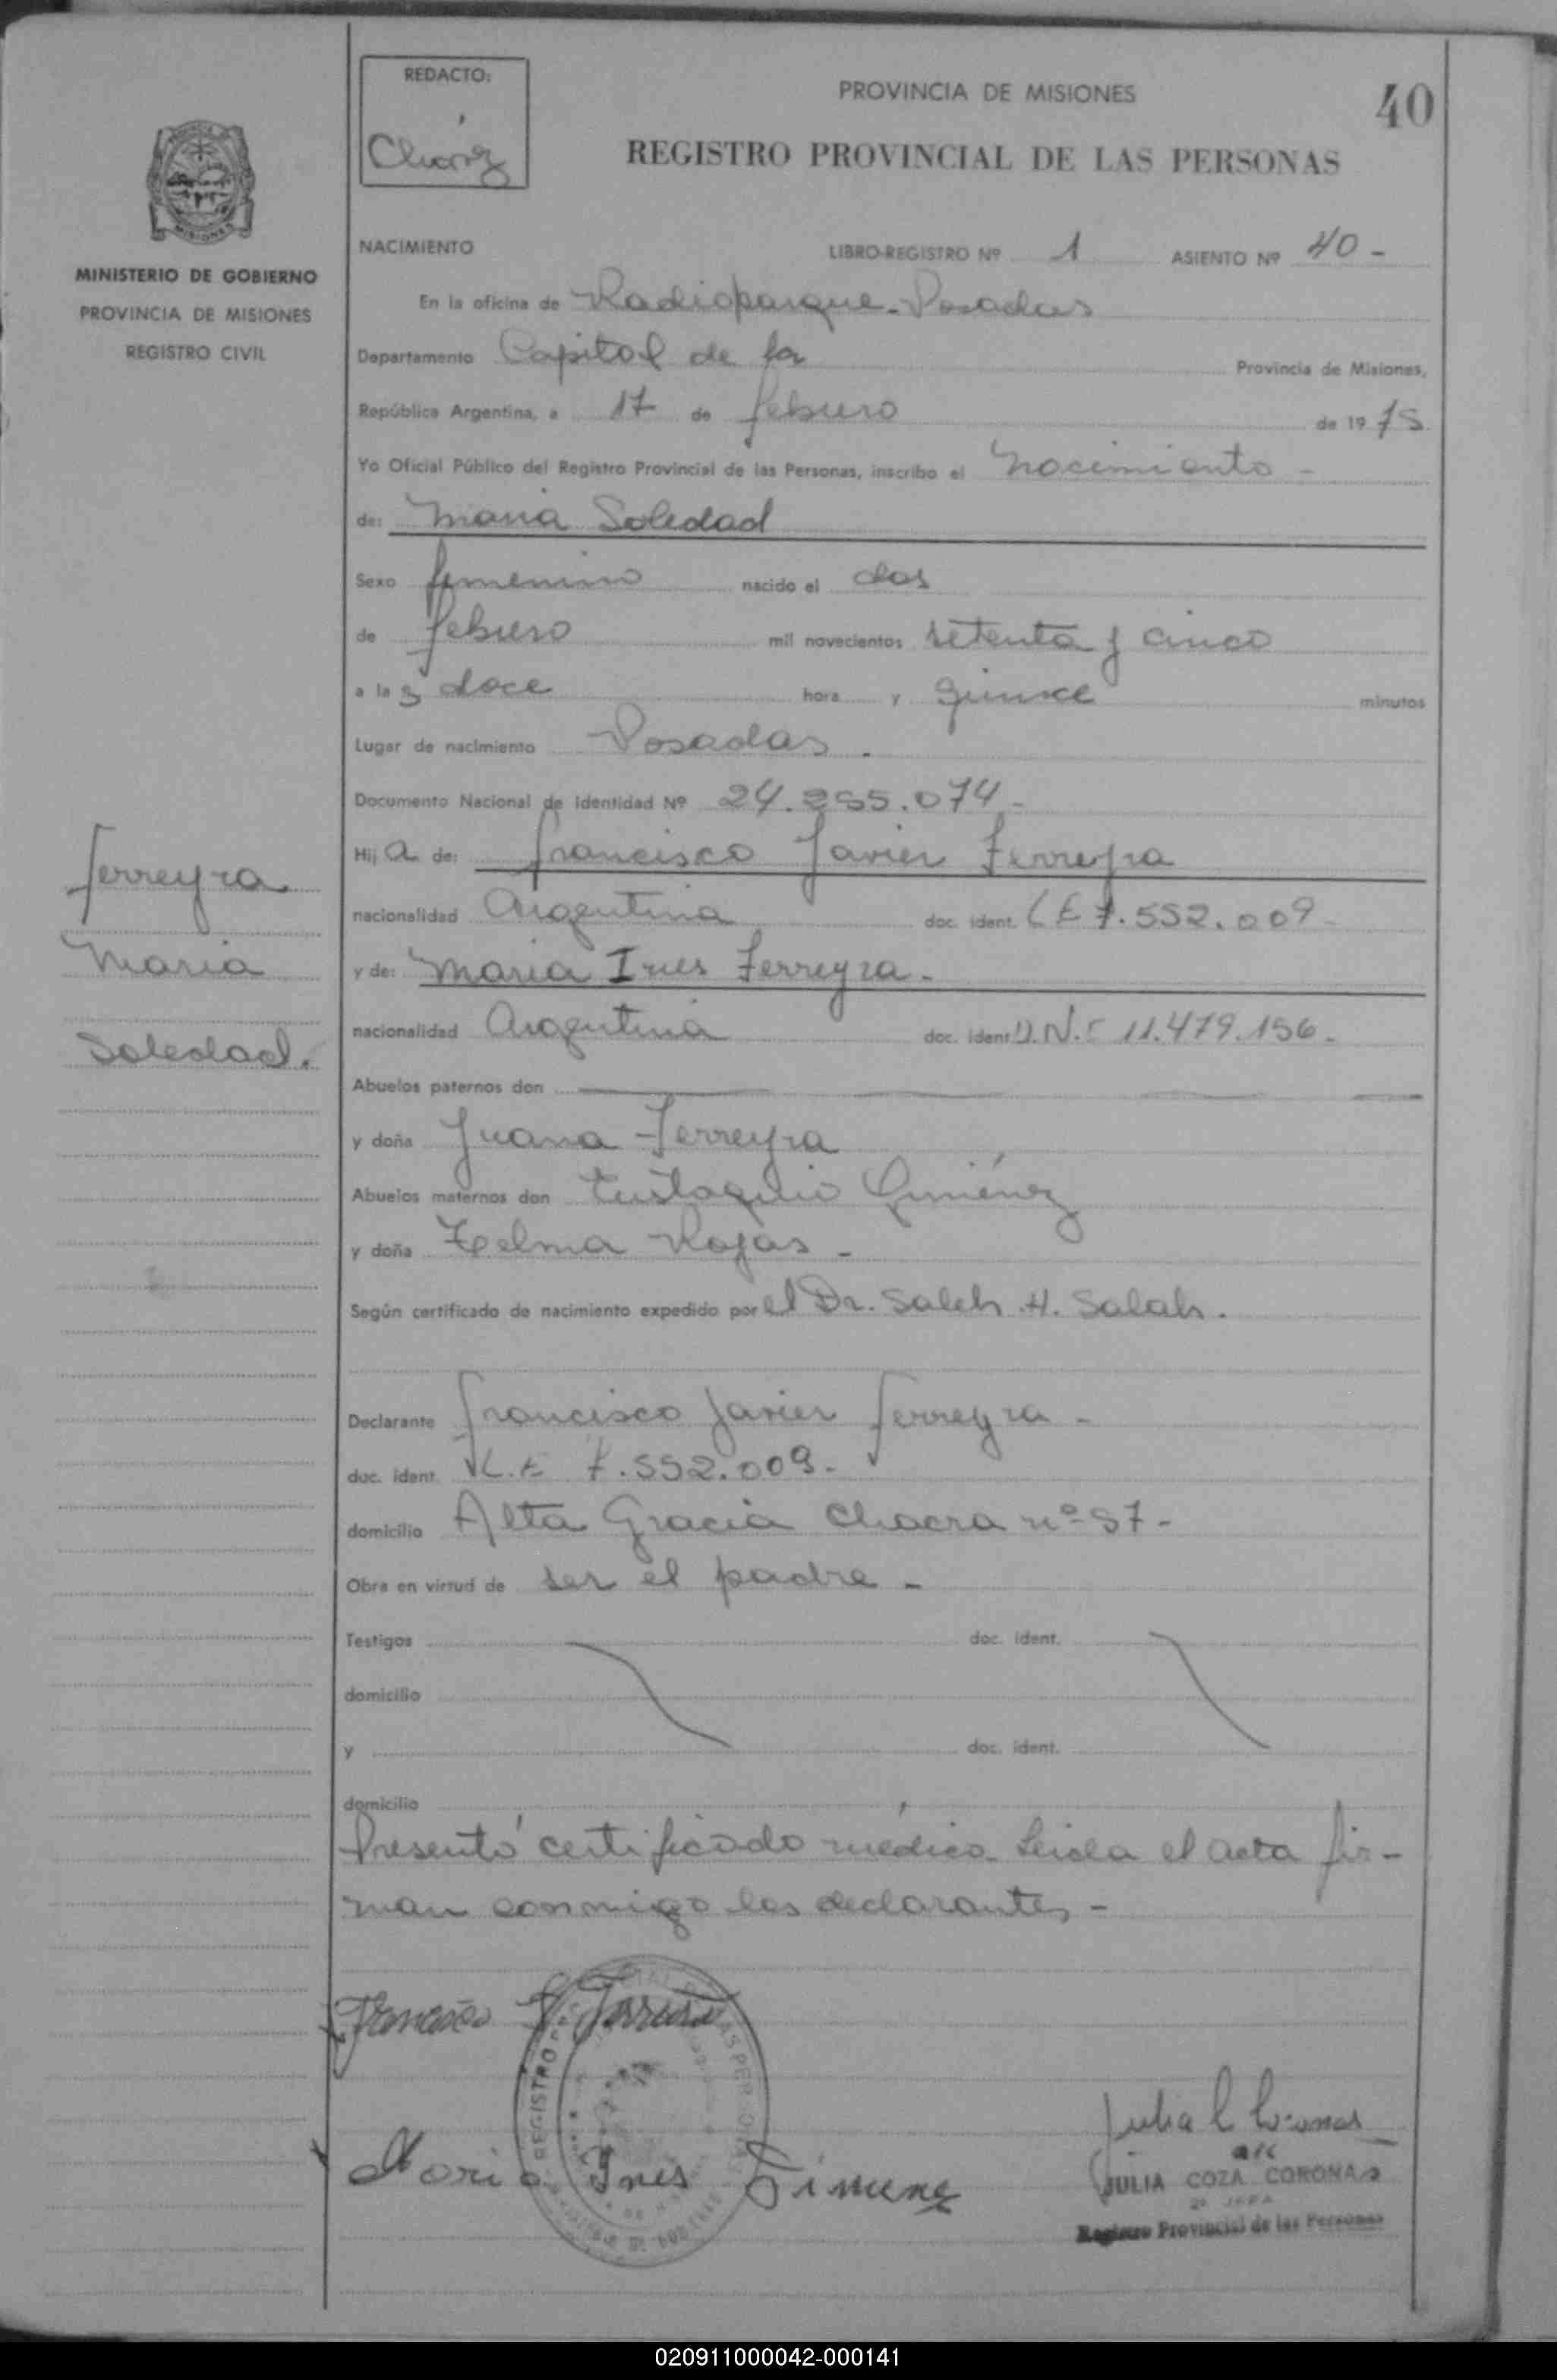 REDACTO:
Chavez
PROVINCIA DE MISIONES
40
REGISTRO PROVINCIAL DE LAS PERSONAS
MISIONES
MINISTERIO DE GOBIERNO
PROVINCIA DE MISIONES
REGISTRO CIVIL
NACIMIENTO LIBRO-REGISTRO Nº 1 ASIENTO Nº 40 -
En la oficina de Radioparque - Posadas
Departamento Capital de la Provincia de Misiones,
República Argentina, a 17 de febrero de 1975
Yo Oficial Público del Registro Provincial de las Personas, inscribo el nacimiento -
de: Maria Soledad
Sexo femenino nacido el dos
de febrero mil novecientos setenta y cinco
a las doce hora y quince minutos
Lugar de nacimiento Posadas.
Documento Nacional de Identidad Nº 24.255.074 -
Hija de: Francisco Javier Ferreyra
nacionalidad Argentina doc. ident. LE 7.552.009 -
y de: Maria Ines Ferreyra -
nacionalidad Argentina doc. ident D.N.I 11.479.156 -
Ferreyra
Maria
Soledad.
Abuelos paternos don
y doña Juana Ferreyra
Abuelos maternos don Eustaquio Giménez
y doña Telma Rojas -
Según certificado de nacimiento expedido por el Dr. Saleh H. Salah.
Declarante Francisco Javier Ferreyra -
doc. ident. L.E 7.552.009 -
domicilio Alta Gracia Chacra nº 97 -
Obra en virtud de ser el padre -
Testigos doc. ident.
domicilio
y doc. ident.
domicilio
Presentó certificado médico. Leida el acta fir-
man conmigo los declarantes -
Francisco J. Ferreira
REGISTRO
Maria Ines Gimenez
Julia C Coronas
JULIA COZA CORONAS
2º JEFA
Registro Provincial de las Personas
020911000042-000141